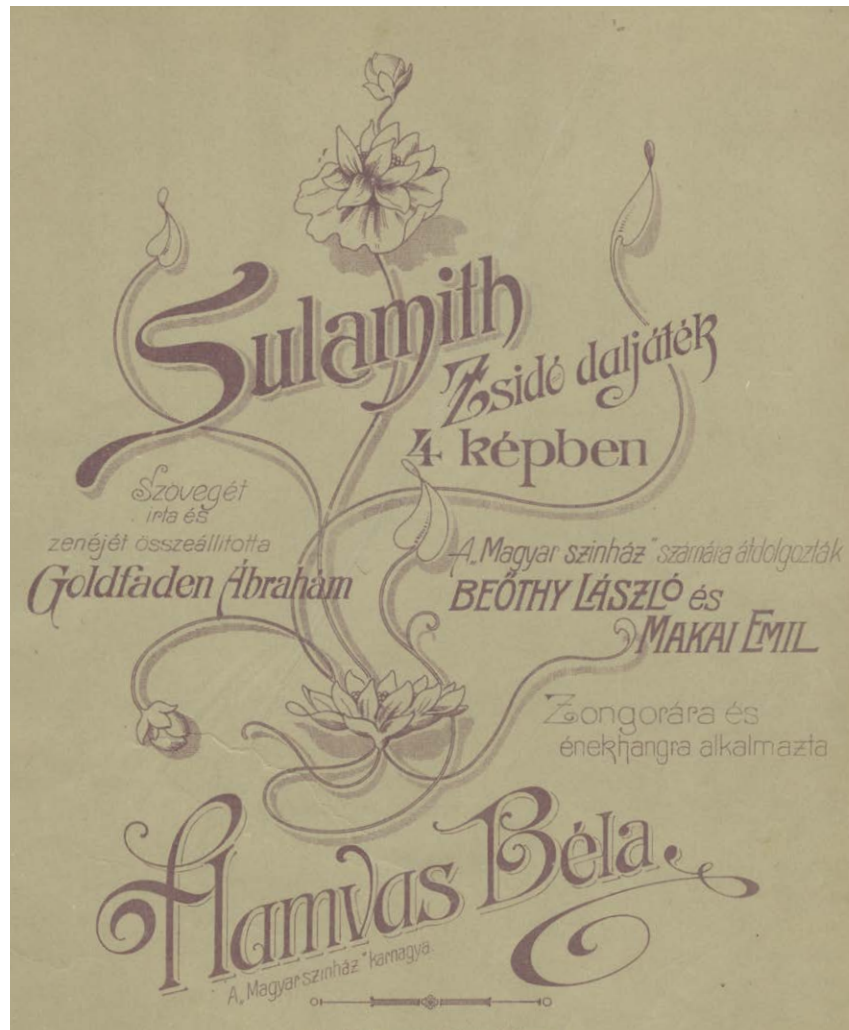 Sulamith
Zsidó daljáték
4 képben
Szövegét
irta és
zenéjét összeállitotta
Goldfaden Ábrahám
A „Magyar szinház” számára átdolgozták
BEŐTHY LÁSZLÓ és
MAKAI EMIL
Zongorára és
énekhangra alkalmazta
Hamvas Béla
A „Magyar szinház” karnagya.